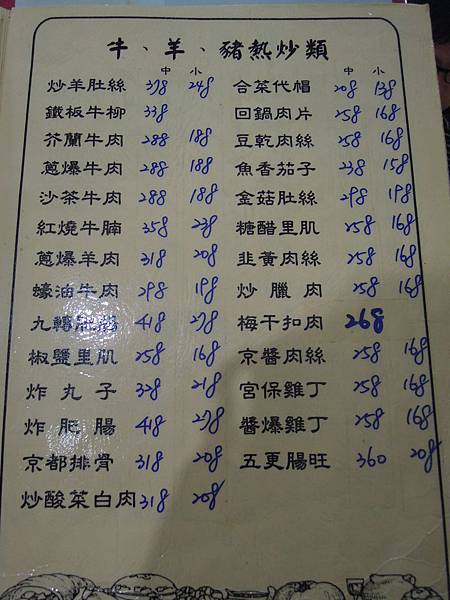 牛、羊、豬熱炒類
中 小
炒羊肚絲 378 248
鐵板牛柳 338
芥蘭牛肉 288 188
蔥爆牛肉 288 188
沙茶牛肉 288 188
紅燒牛腩 358 238
蔥爆羊肉 318 208
蠔油牛肉 298 198
九轉肥腸 418 278
椒鹽里肌 258 168
炸丸子 328 218
炸肥腸 418 278
京都排骨 318 208
炒酸菜白肉 318 208
中 小
合菜代帽 208 138
回鍋肉片 258 168
豆乾肉絲 258 168
魚香茄子 238 158
金菇肚絲 298 198
糖醋里肌 258 168
韭黃肉絲 258 168
炒臘肉 258 168
梅干扣肉 268
京醬肉絲 258 168
宮保雞丁 258 168
醬爆雞丁 258 168
五更腸旺 360 208